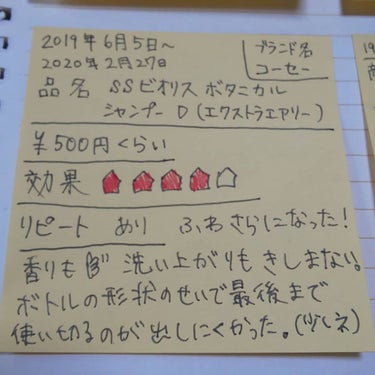 2019年6月5日～
2020年2月27日
ブランド名
コーセー
品名 SSビオリス ボタニカル
シャンプーD(エクストラエアリー)
￥500円くらい
効果
リピート あり ふわさらになった!
香りも 洗い上がりもきしまない。
ボトルの形状のせいで最後まで
使い切るのが出しにくかった。(少しネ)
19